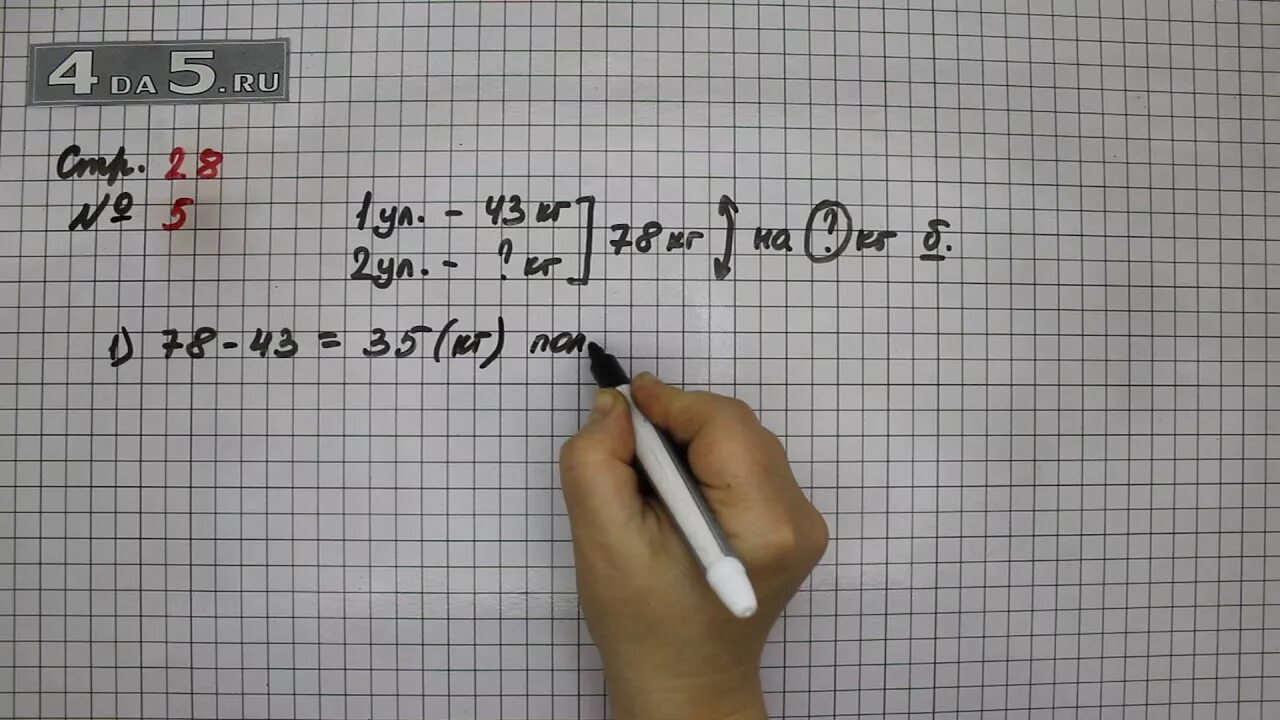 4DA5.RU
Стр. 28
№ 5
1 ул. - 43 кг
2 ул. - ? кг
78 кг на ? кг б.
1) 78 - 43 = 35 (кг) пол